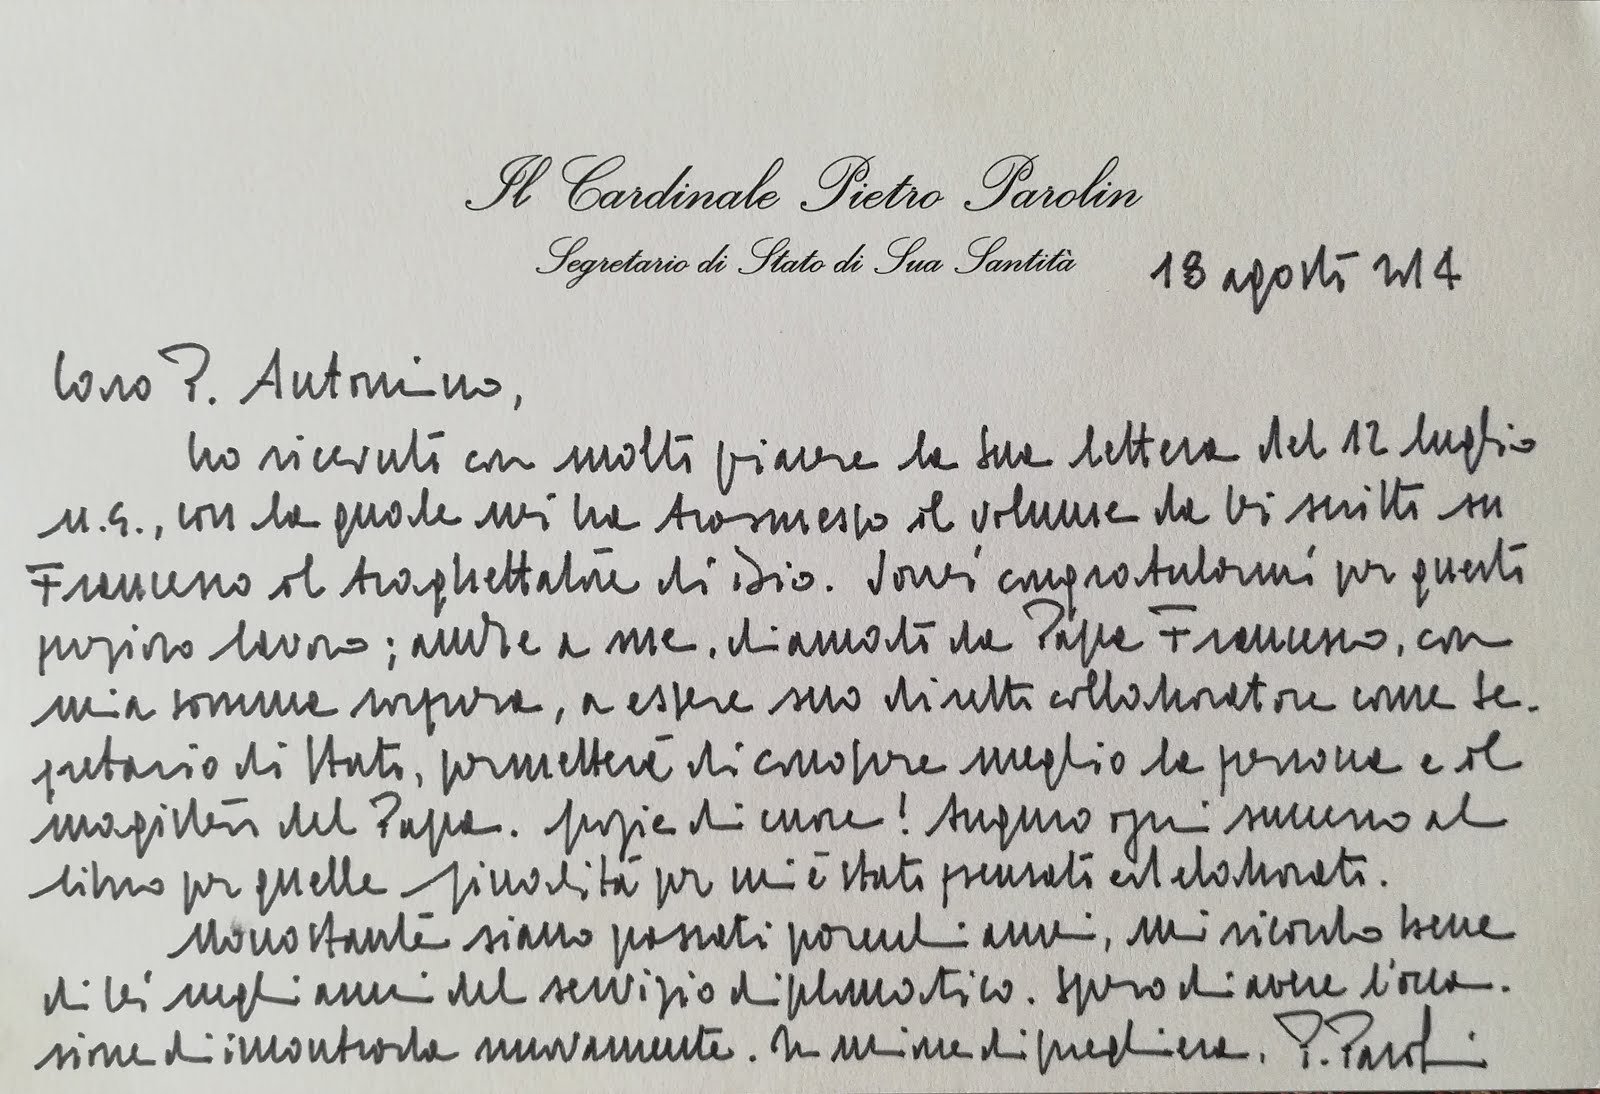 Il Cardinale Pietro Parolin
Segretario di Stato di Sua Santità
18 agosto 2014
Caro P. Antonino,
ho ricevuto con molto piacere la Sua lettera del 12 luglio
u.s., con la quale mi ha trasmesso il volume da Lei scritto su
Francesco il traghettatore di Dio. Vorrei congratularmi per questo
prezioso lavoro; anche a me, chiamato da Papa Francesco, con
mia somma sorpresa, a essere suo diretto collaboratore come Se-
gretario di Stato, permetterà di conoscere meglio la persona e il
magistero del Papa. Grazie di cuore! Auguro ogni successo al
libro per quelle finalità per cui è stato pensato ed elaborato.
Nonostante siano passati parecchi anni, mi ricordo bene
di Lei negli anni del servizio diplomatico. Spero di avere l'occa-
sione di incontrarla nuovamente. In unione di preghiera, P. Parolin